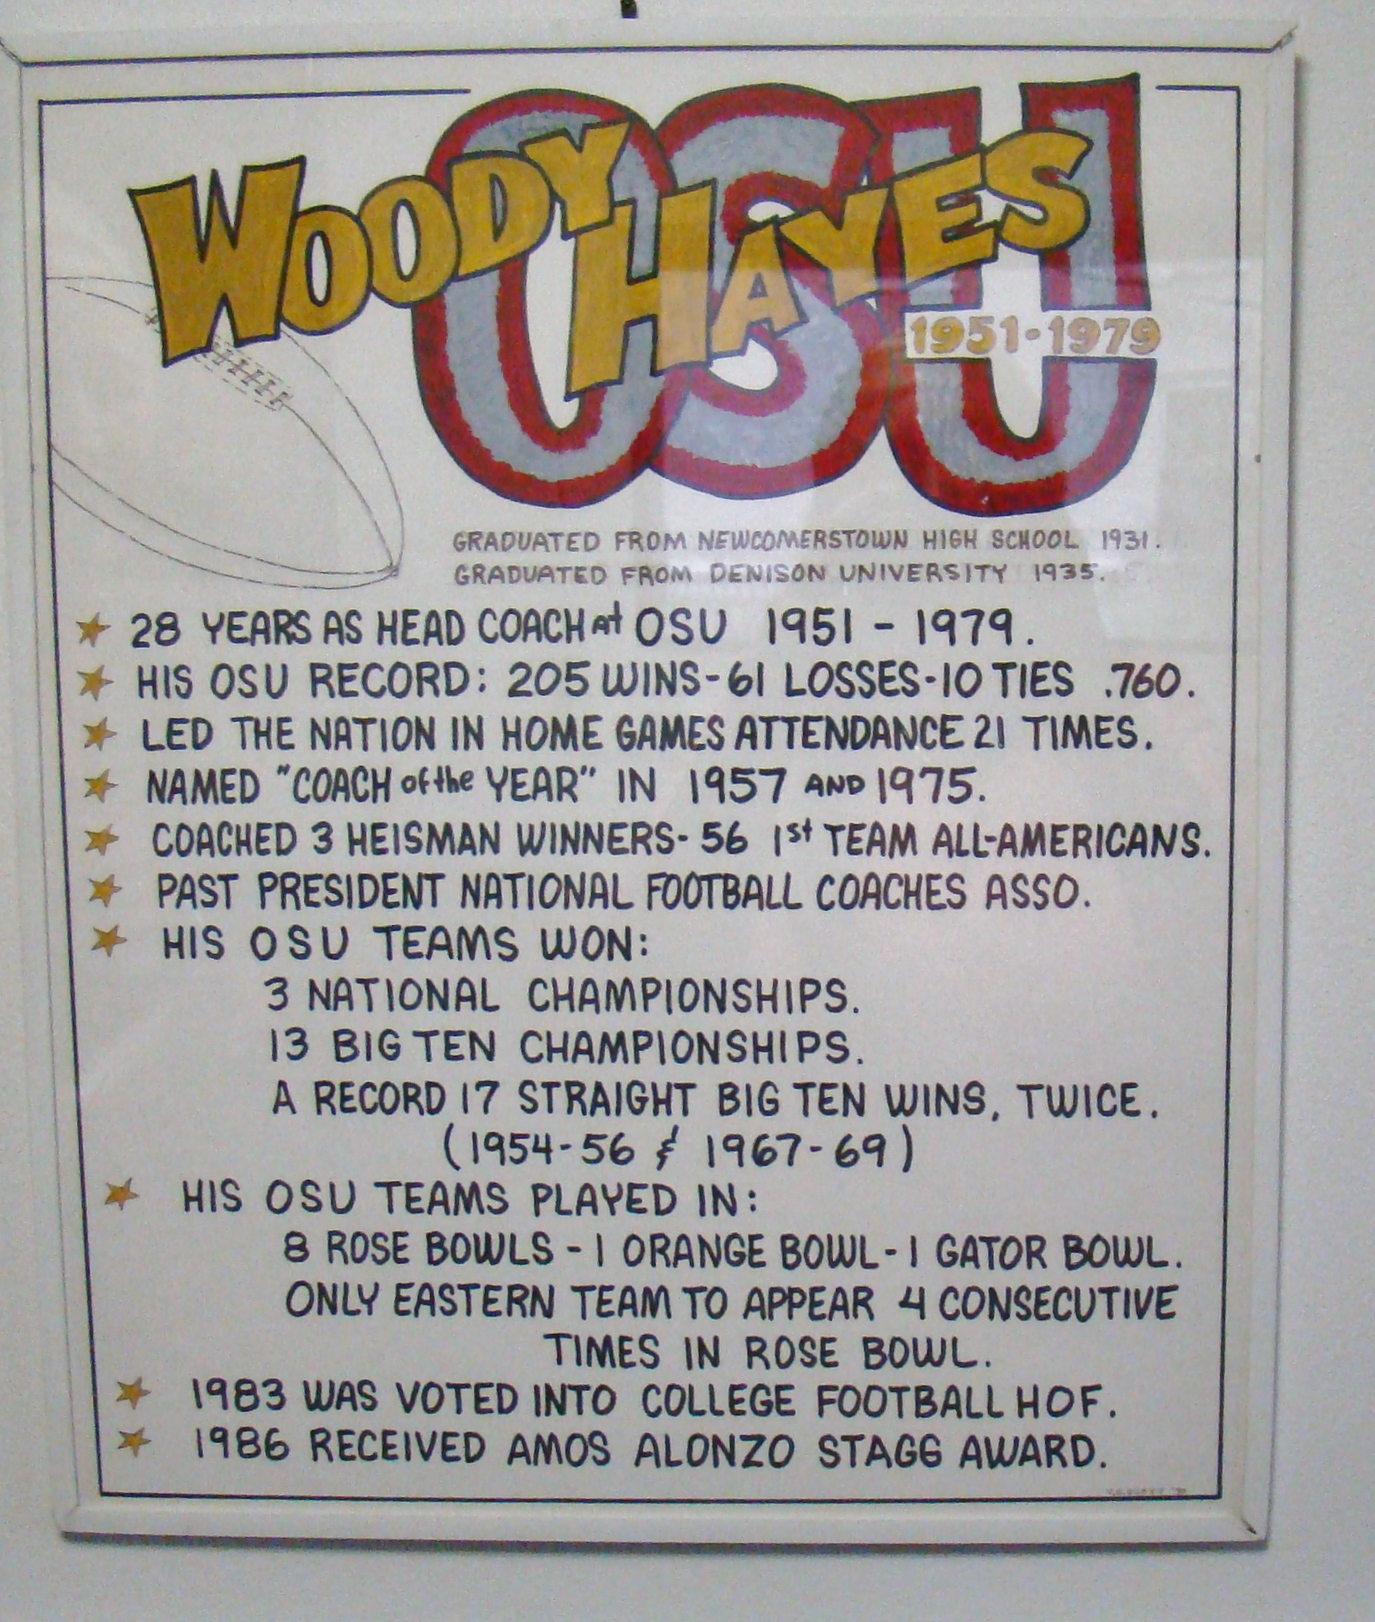 OSU
WOODY HAYES
1951-1979
GRADUATED FROM NEWCOMERSTOWN HIGH SCHOOL 1931.
GRADUATED FROM DENISON UNIVERSITY 1935.
28 YEARS AS HEAD COACH at OSU 1951 - 1979.
HIS OSU RECORD: 205 WINS-61 LOSSES-10 TIES .760.
LED THE NATION IN HOME GAMES ATTENDANCE 21 TIMES.
NAMED "COACH of the YEAR" IN 1957 AND 1975.
COACHED 3 HEISMAN WINNERS- 56 1st TEAM ALL-AMERICANS.
PAST PRESIDENT NATIONAL FOOTBALL COACHES ASSO.
HIS OSU TEAMS WON:
3 NATIONAL CHAMPIONSHIPS.
13 BIG TEN CHAMPIONSHIPS.
A RECORD 17 STRAIGHT BIG TEN WINS, TWICE.
(1954-56 & 1967-69)
HIS OSU TEAMS PLAYED IN:
8 ROSE BOWLS - 1 ORANGE BOWL - 1 GATOR BOWL.
ONLY EASTERN TEAM TO APPEAR 4 CONSECUTIVE
TIMES IN ROSE BOWL.
1983 WAS VOTED INTO COLLEGE FOOTBALL HOF.
1986 RECEIVED AMOS ALONZO STAGG AWARD.